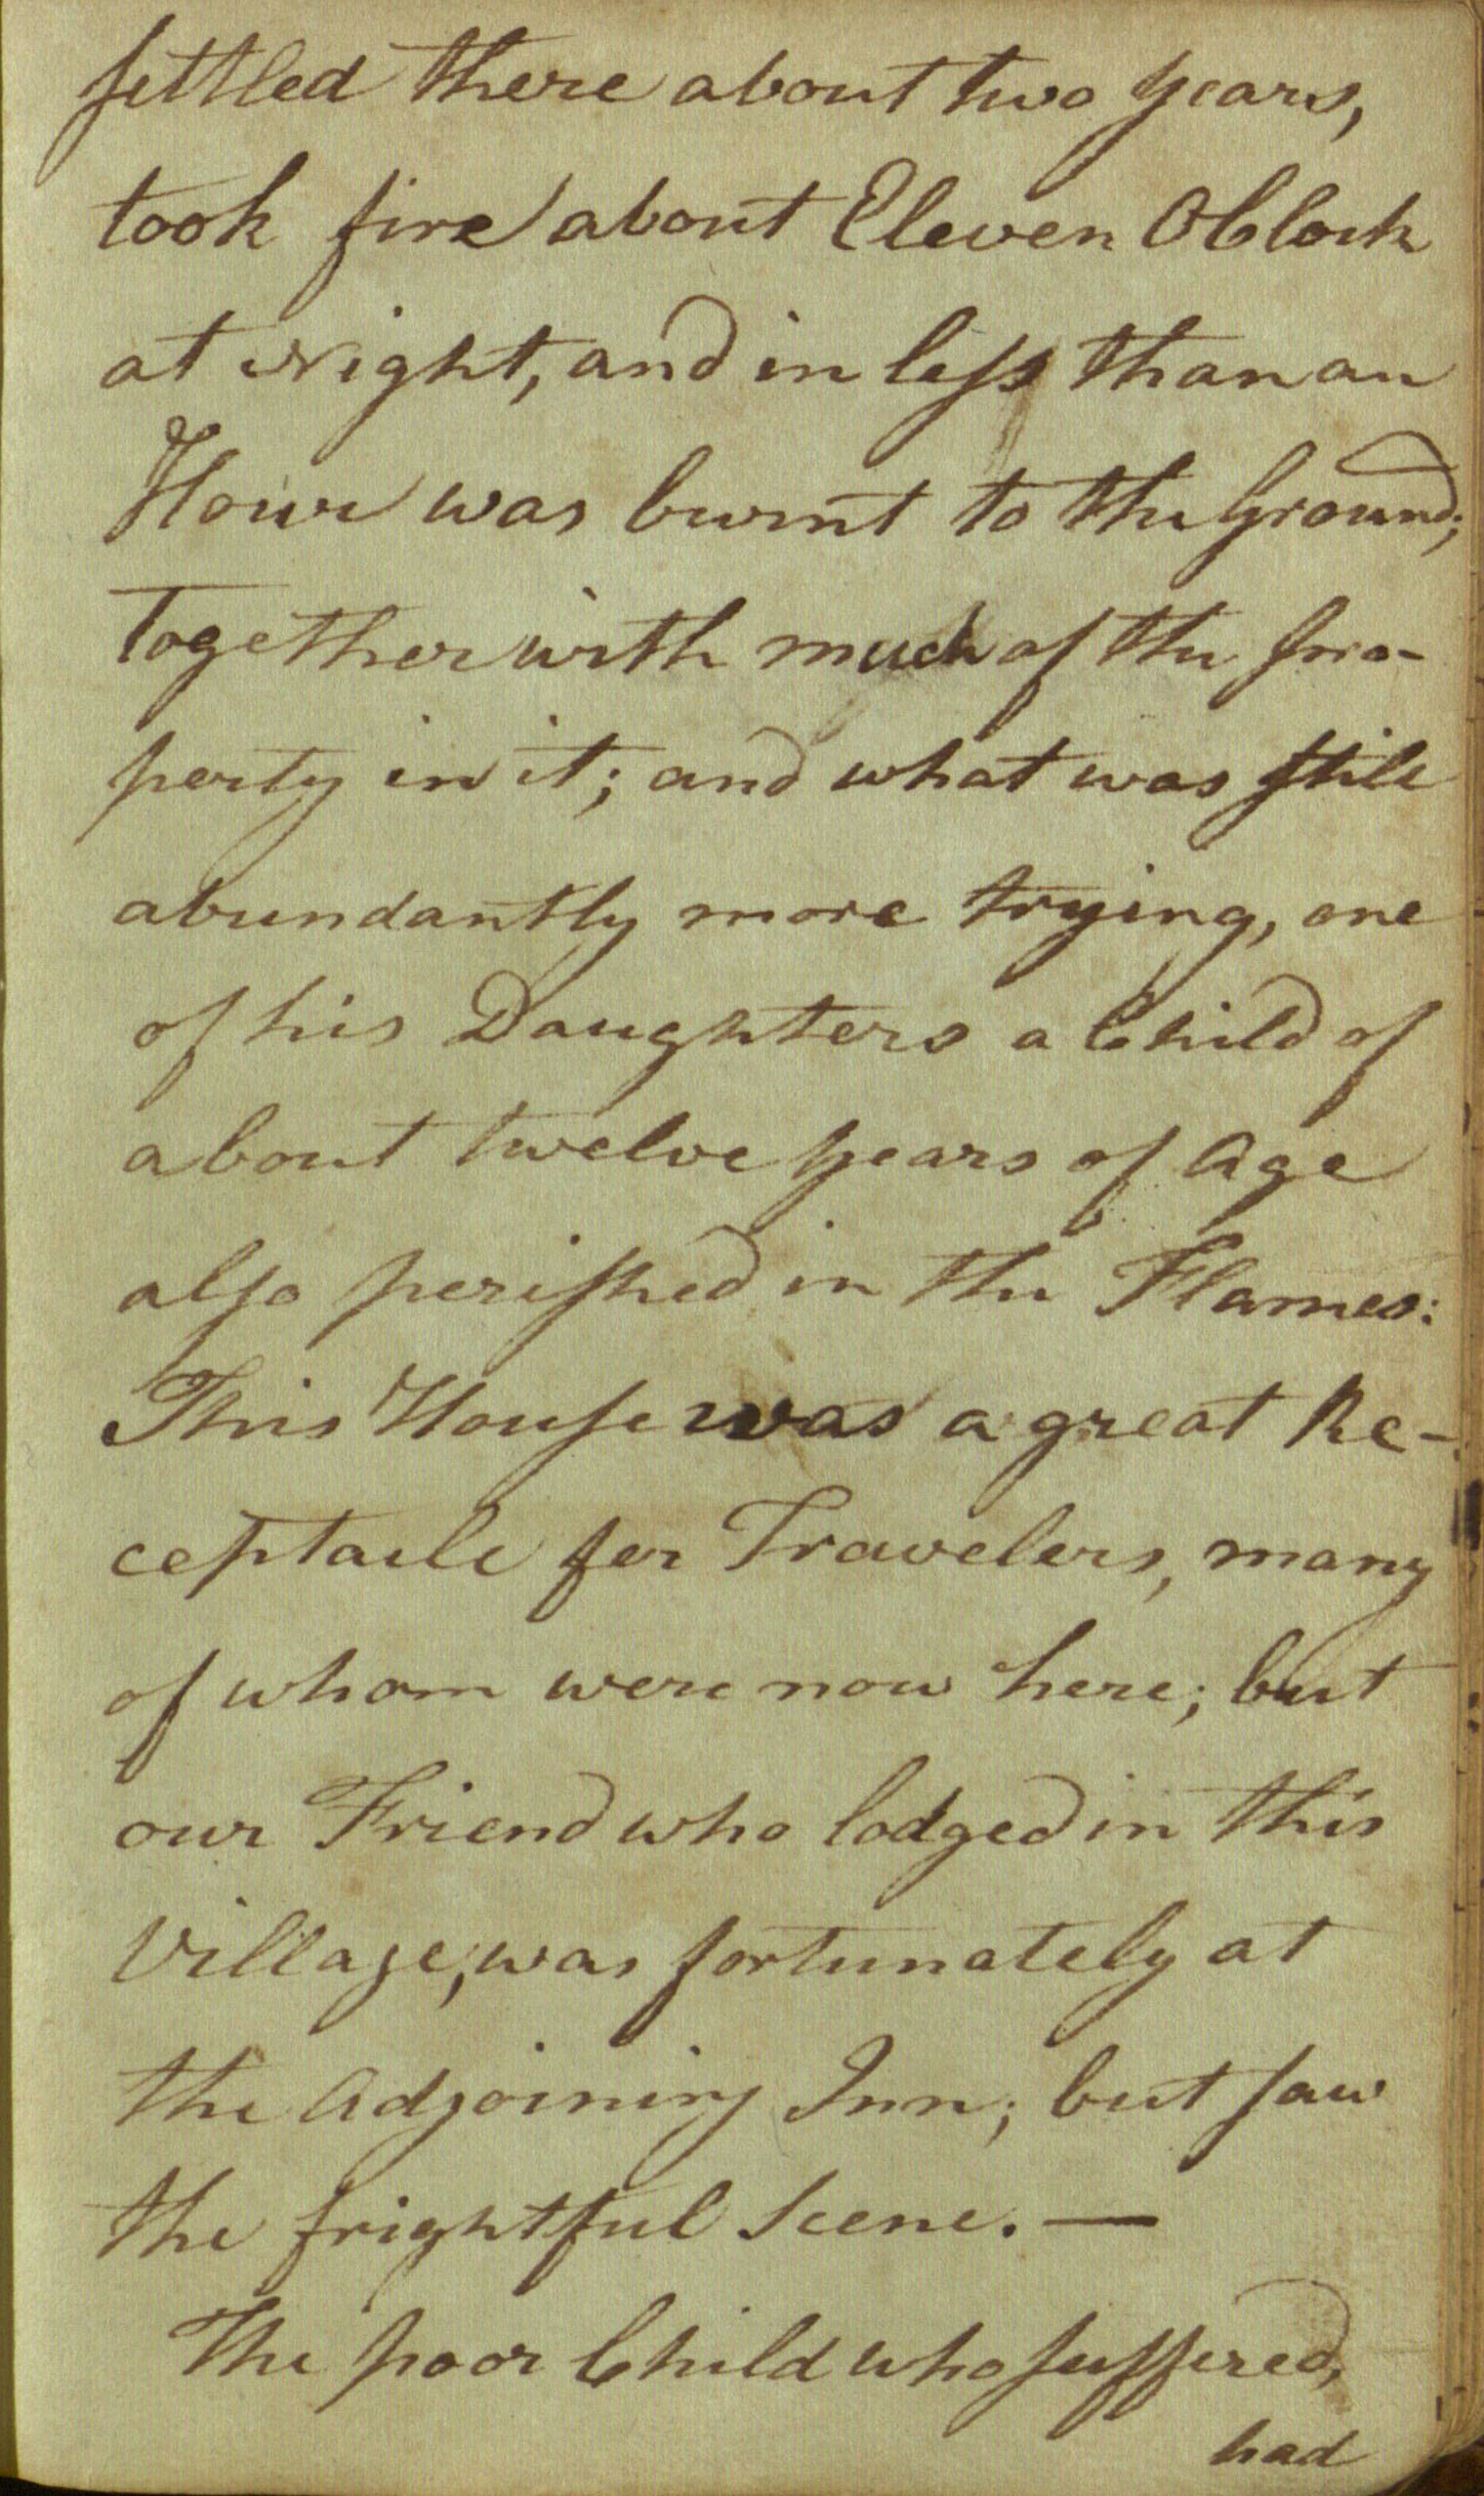 settled there about two years,
took fire about Eleven OClock
at Night, and in less than an
Hour was burnt to the Ground;
together with much of the pro-
perty in it; and what was still
abundantly more trying, one
of his Daughters a Child of
about twelve years of Age
also perished in the Flames:
This House was a great Re-
ceptacle for Travelers, many
of whom were now here; but
our Friend who lodged in this
Village, was fortunately at
the Adjoining Inn; but saw
the frightful Scene. —
The poor Child who suffered,
had